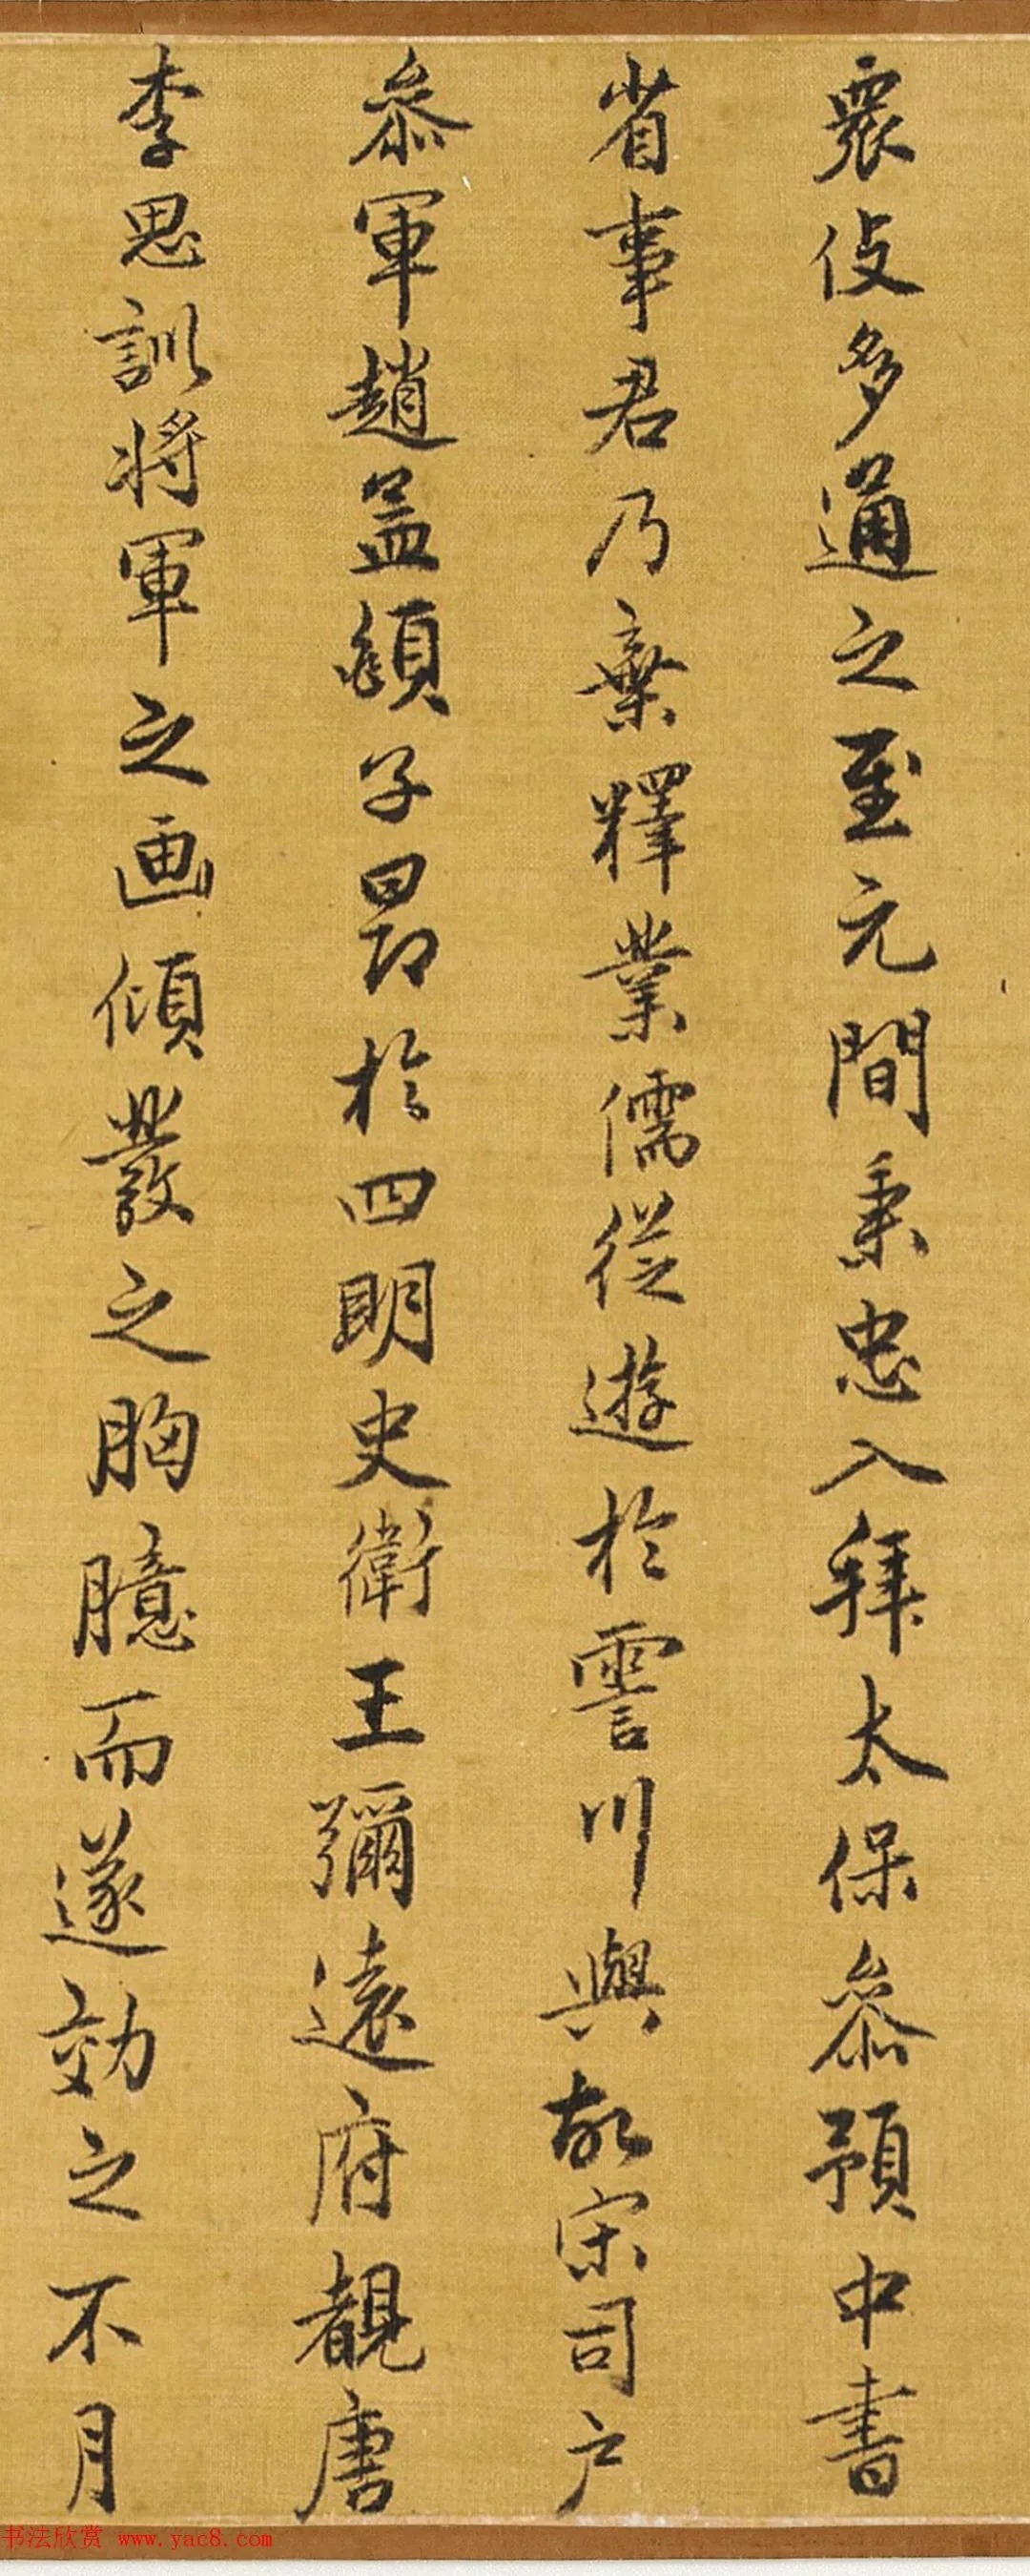 衆伎多通之至元間秉忠入拜太保叅預中書
省事君乃棄釋業儒從遊於霅川與故宋司户
叅軍趙孟頫子昂於四明史衛王彌遠府覩唐
李思訓将軍之画傾䕻之胸臆而遂効之不月
书法欣赏 www.yac8.com